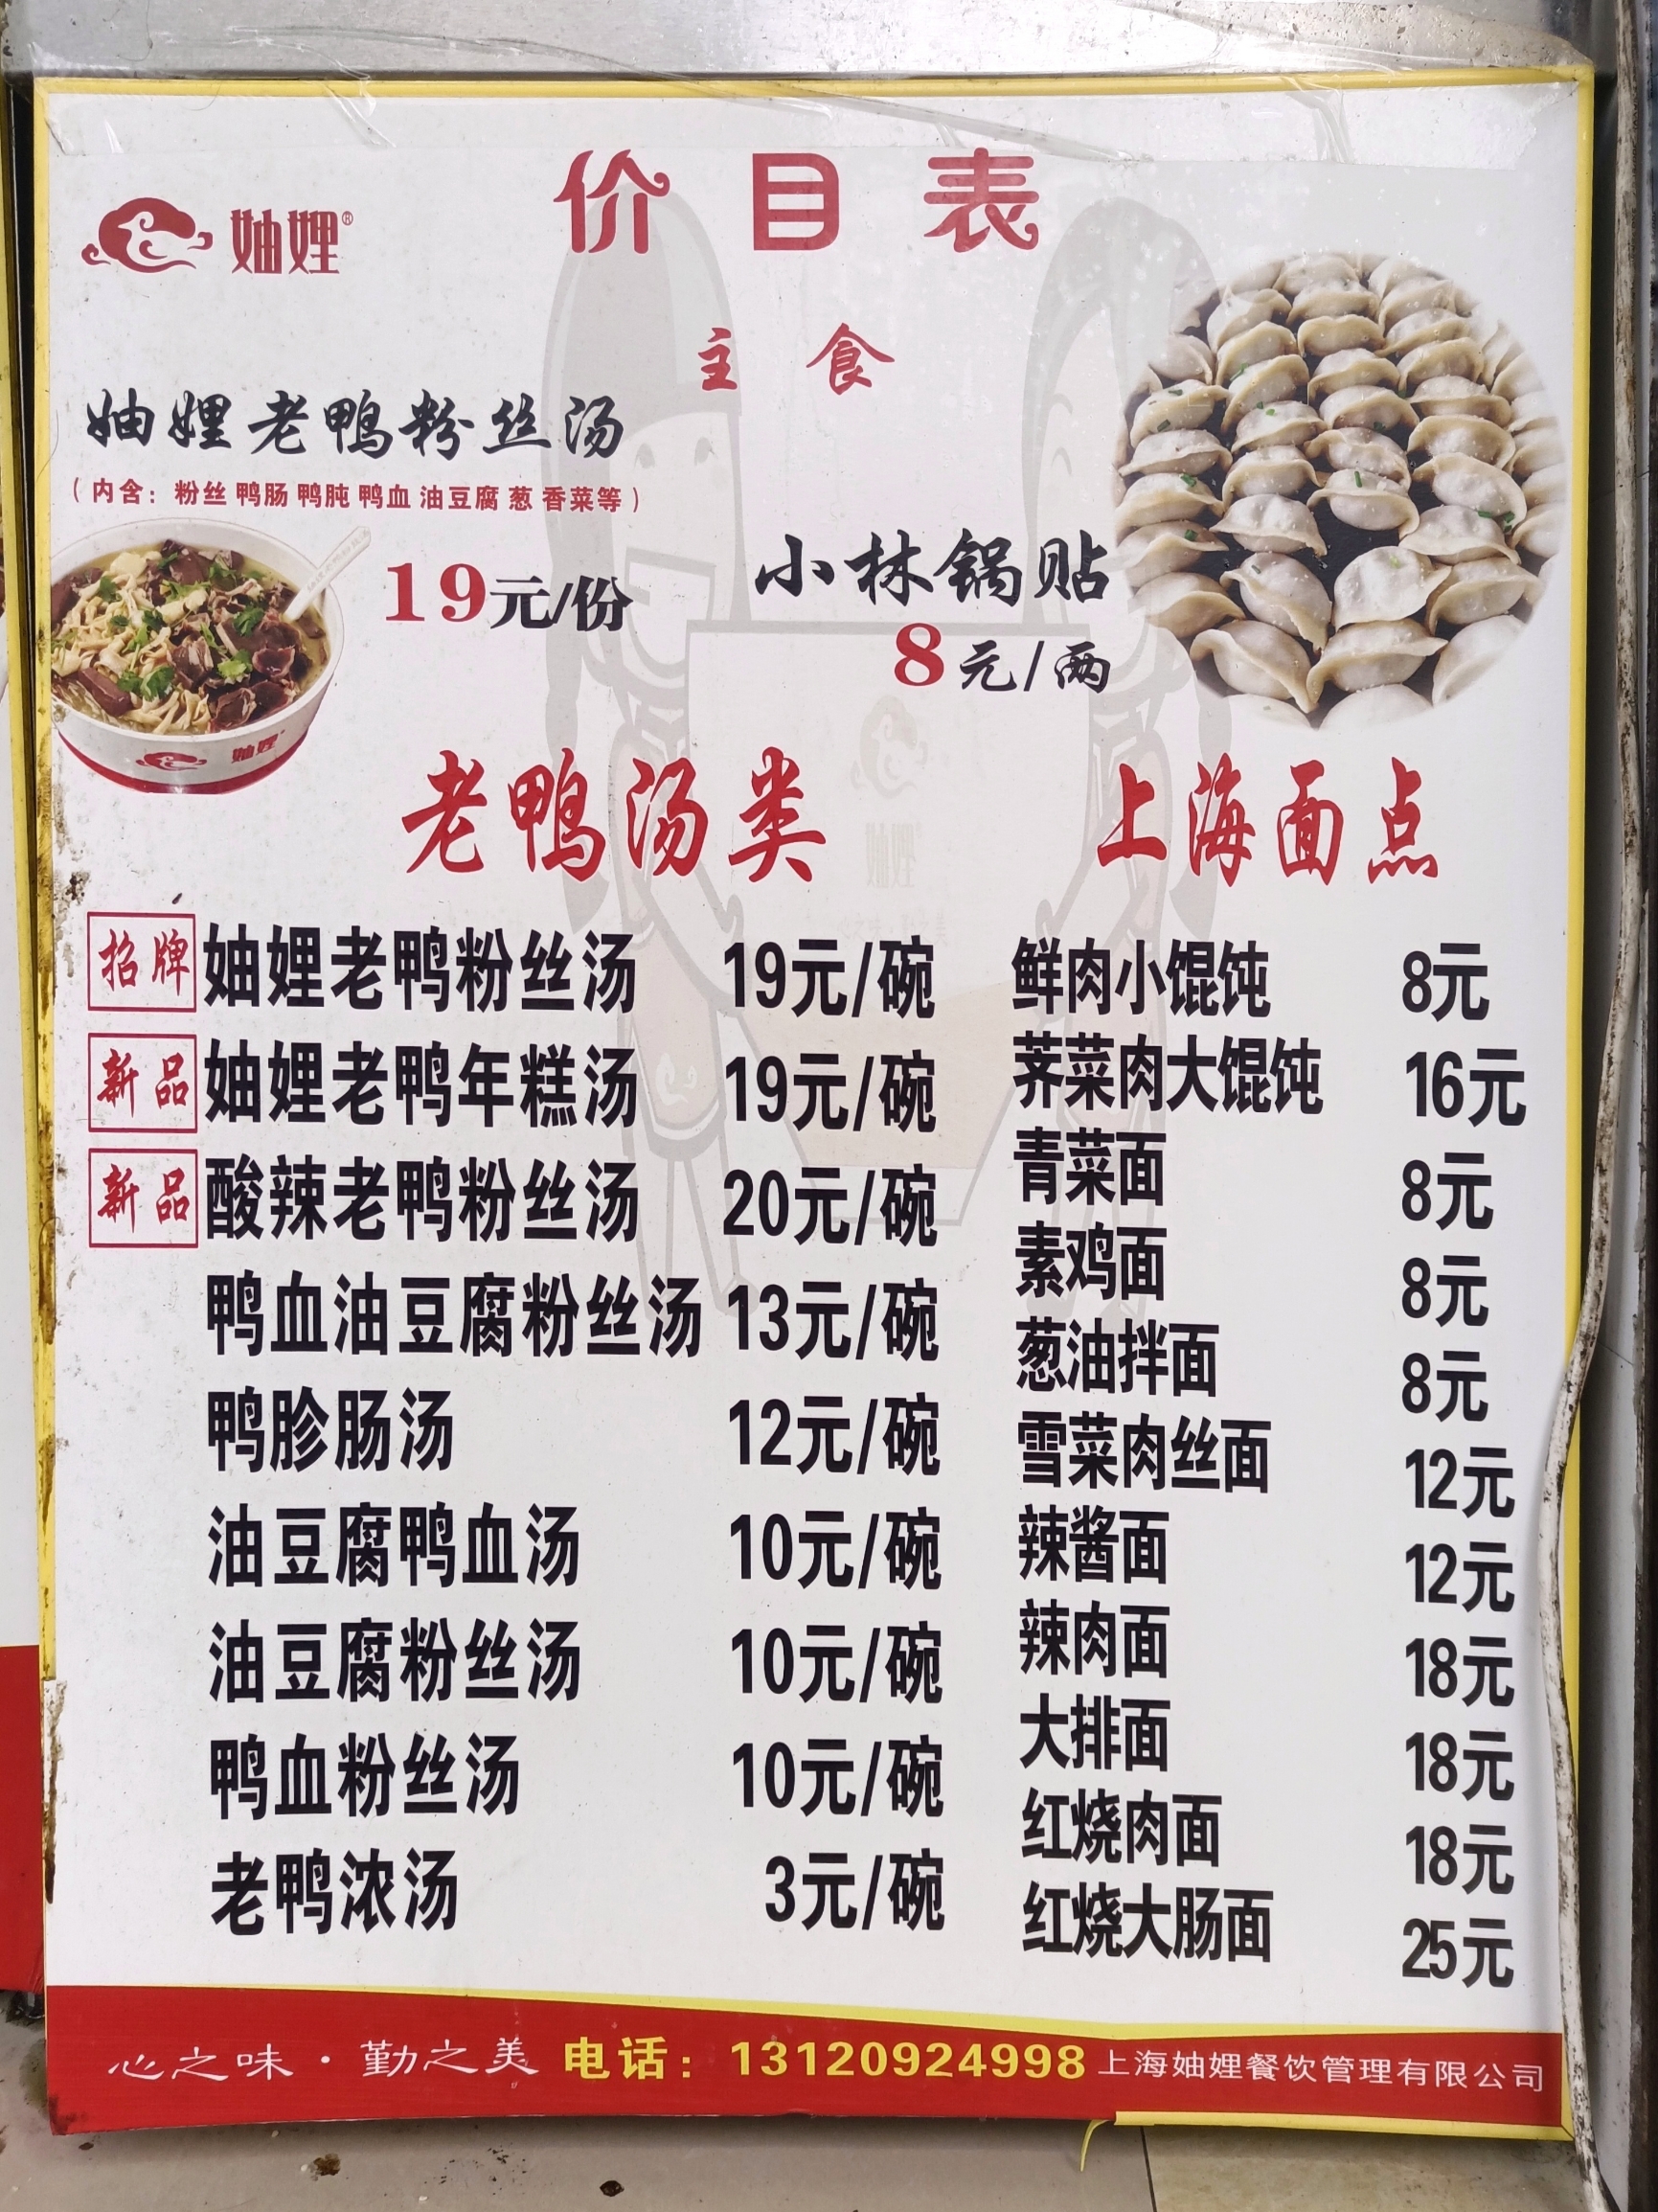 价目表
妯娌®
主食
妯娌老鸭粉丝汤
（内含：粉丝 鸭肠 鸭肫 鸭血 油豆腐 葱 香菜等）
19元/份
小林锅贴
8元/两
妯娌
老鸭汤类
招牌 妯娌老鸭粉丝汤 19元/碗
新品 妯娌老鸭年糕汤 19元/碗
新品 酸辣老鸭粉丝汤 20元/碗
鸭血油豆腐粉丝汤 13元/碗
鸭胗肠汤 12元/碗
油豆腐鸭血汤 10元/碗
油豆腐粉丝汤 10元/碗
鸭血粉丝汤 10元/碗
老鸭浓汤 3元/碗
上海面点
鲜肉小馄饨 8元
荠菜肉大馄饨 16元
青菜面 8元
素鸡面 8元
葱油拌面 8元
雪菜肉丝面 12元
辣酱面 12元
辣肉面 18元
大排面 18元
红烧肉面 18元
红烧大肠面 25元
心之味·勤之美 电话：13120924998 上海妯娌餐饮管理有限公司